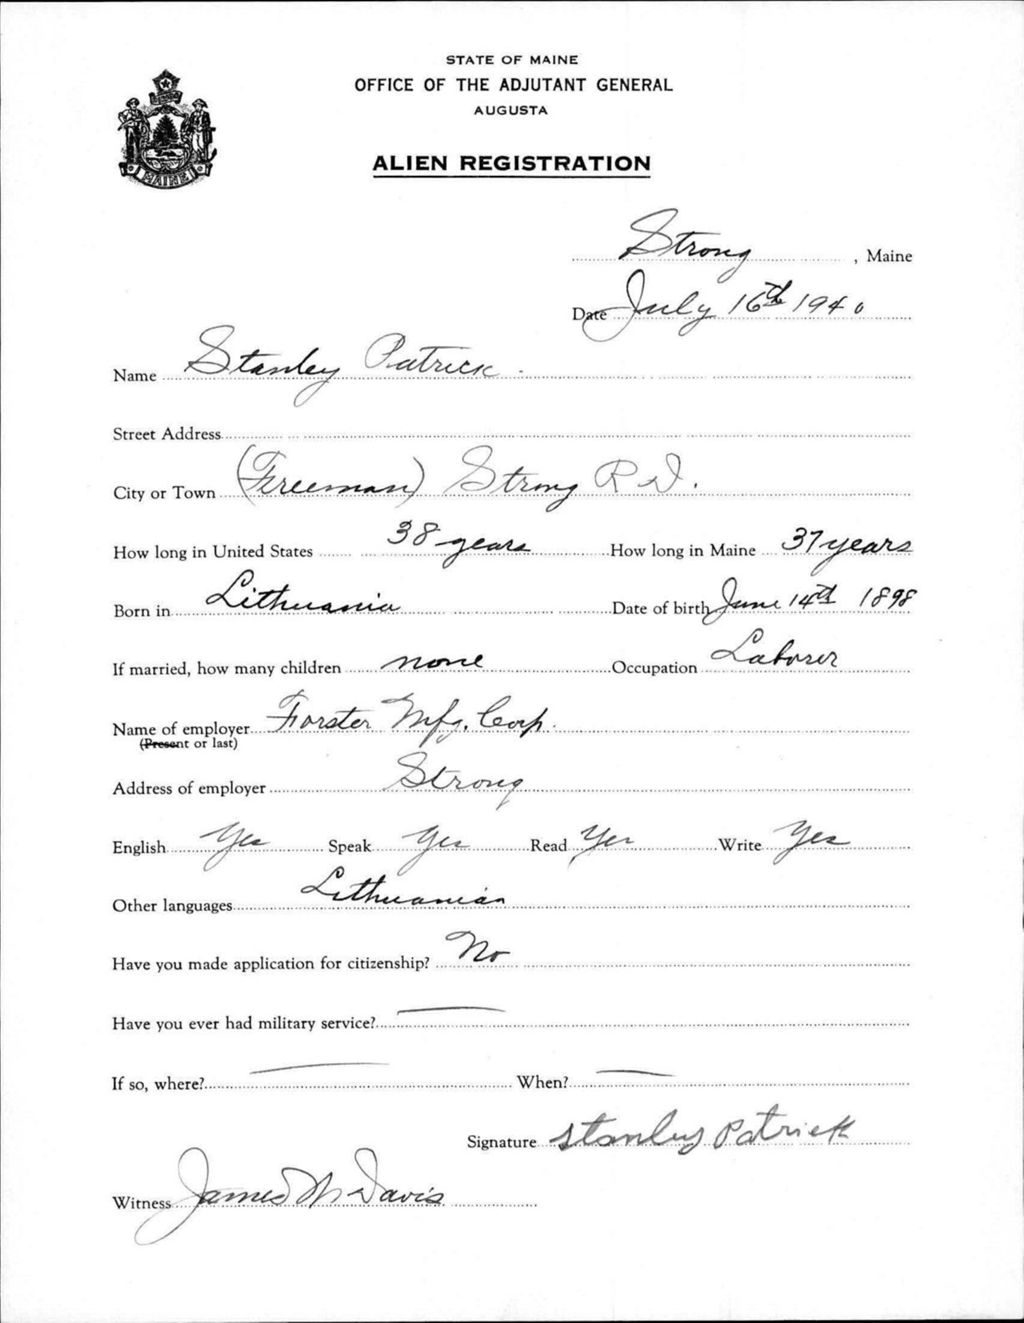 STATE OF MAINE
OFFICE OF THE ADJUTANT GENERAL
AUGUSTA
ALIEN REGISTRATION
MAINE
Strong, Maine
Date July 16th 1940
Name Stanley Patrick.
Street Address
City or Town (Freeman) Strong R.D.
How long in United States 38 years How long in Maine 37 years
Born in Lithuania Date of birth June 14th 1898
If married, how many children none Occupation Laborer
Name of employer Forster Mfg. Corp.
(Present or last)
Address of employer Strong
English Yes Speak Yes Read Yes Write Yes
Other languages Lithuanian
Have you made application for citizenship? No
Have you ever had military service? —
If so, where? — When? —
Signature Stanley Patrick
Witness James M Davis